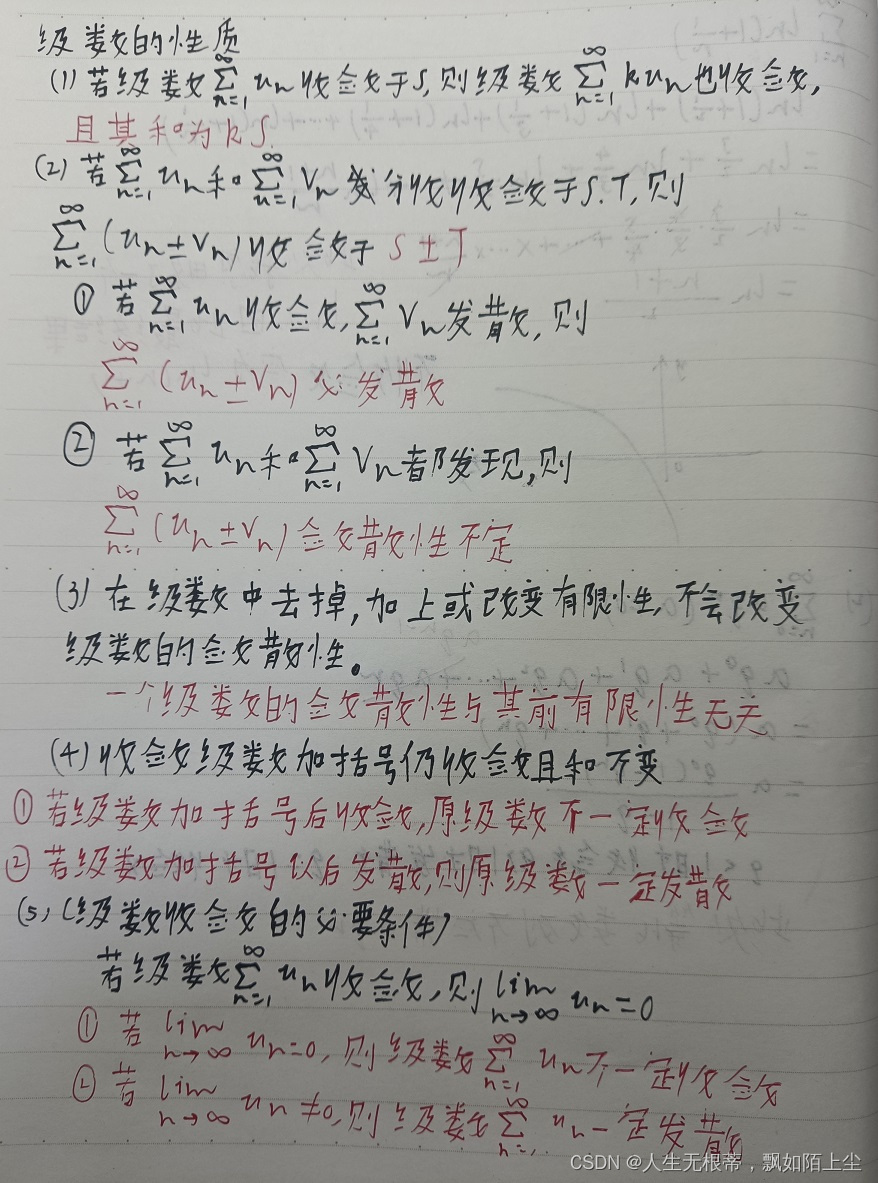 级数的性质
(1) 若级数∑_{n=1}^{∞} u_n 收敛于S, 则级数 ∑_{n=1}^{∞} ku_n 也收敛,
且其和为kS.
(2) 若∑_{n=1}^{∞} u_n 和 ∑_{n=1}^{∞} V_n 分别收收敛于S.T, 则
∑_{n=1}^{∞} (u_n ± V_n) 收敛于 S ± T
① 若∑_{n=1}^{∞} u_n 收敛, ∑_{n=1}^{∞} V_n 发散, 则
∑_{n=1}^{∞} (u_n ± V_n) 必发散
② 若∑_{n=1}^{∞} u_n 和 ∑_{n=1}^{∞} V_n 都发现, 则
∑_{n=1}^{∞} (u_n ± V_n) 敛散性不定
(3) 在级数中去掉, 加上或改变有限性, 不会改变
级数的敛散性。
一个级数的敛散性与其前有限性无关
(4) 收敛级数加括号仍收敛且和不变
① 若级数加括号后收敛, 原级数不一定收敛
② 若级数加括号以后发散, 则原级数一定发散
(5) (级数收敛的必要条件)
若级数∑_{n=1}^{∞} u_n 收敛, 则 lim_{n→∞} u_n = 0
① 若 lim_{n→∞} u_n = 0, 则级数∑_{n=1}^{∞} u_n 不一定收敛
② 若 lim_{n→∞} u_n ≠ 0, 则级数∑_{n=1}^{∞} u_n 一定发散
CSDN @人生无根蒂，飘如陌上尘